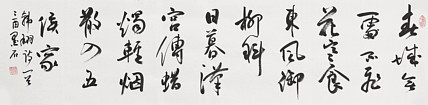 春城無
處不飛
花寒食
東風御
柳斜
日暮漢
宮傳蜡
燭輕烟
散入五
侯家
韓翃詩一首